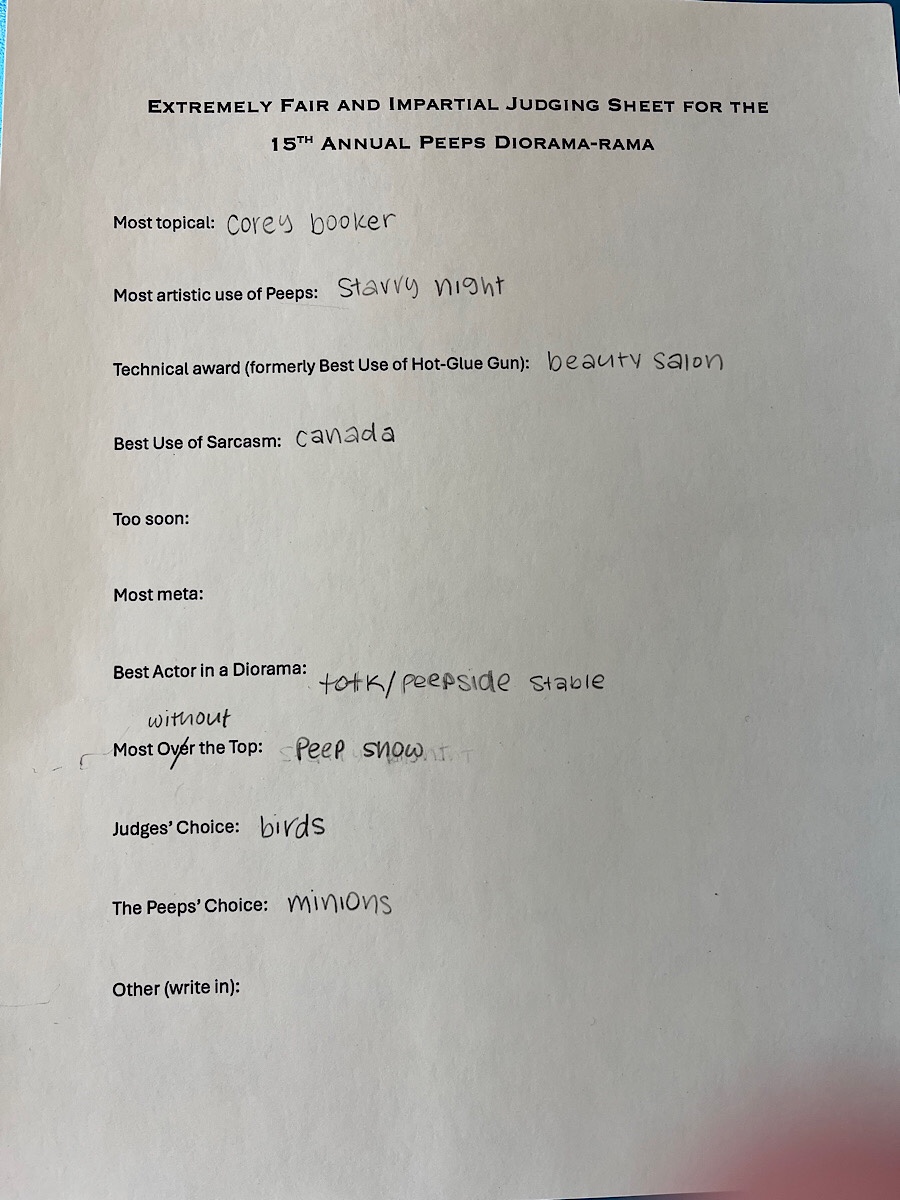 EXTREMELY FAIR AND IMPARTIAL JUDGING SHEET FOR THE
15TH ANNUAL PEEPS DIORAMA-RAMA
Most topical: corey booker
Most artistic use of Peeps: Starry night
Technical award (formerly Best Use of Hot-Glue Gun): beauty salon
Best Use of Sarcasm: canada
Too soon:
Most meta:
Best Actor in a Diorama: totk/peepside stable
without
Most Over the Top: Peep show
Judges’ Choice: birds
The Peeps’ Choice: minions
Other (write in):